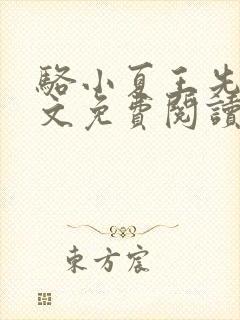 駱小夏王先
文免費閱讀
東方宸